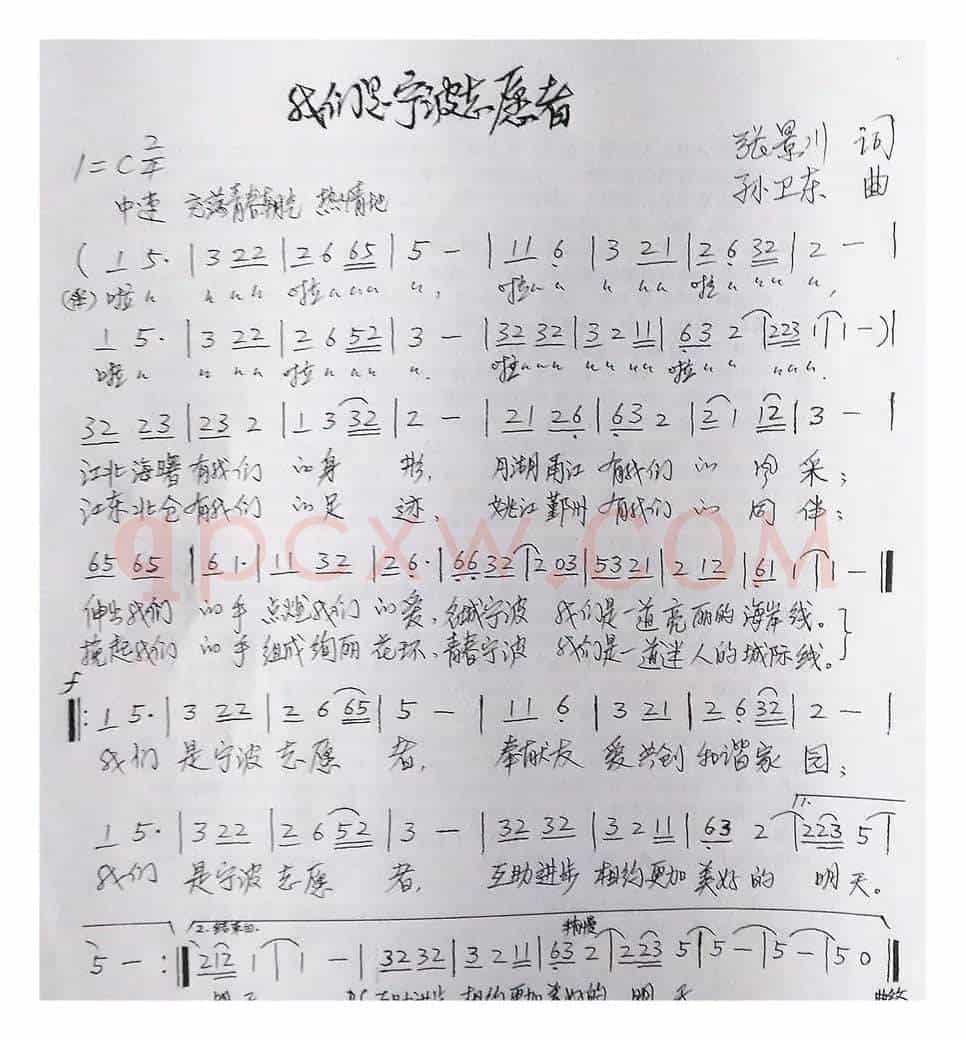 我们是宁波志愿者
1=C 2/4
张景川 词
孙卫东 曲
中速 充满青春朝气 热情地
( 1 5· | 3 22 | 2 6 65 | 5 - | 11 6 | 3 21 | 2 6 32 | 2 - |
啦〃 〃 〃〃 啦〃〃〃 〃, 啦〃〃 〃 〃〃 啦〃〃〃 〃,
1 5· | 3 22 | 2 6 52 | 3 - | 32 32 | 3 2 11 | 63 2 | 223 1 | 1 - ) |
啦〃 〃 〃〃 啦〃〃〃 〃. 啦〃〃〃 〃〃〃〃 啦〃〃 〃〃〃.
32 23 | 23 2 | 1 3 32 | 2 - | 21 26 | 63 2 | 2 1 12 | 3 - |
江北海曙有我们 的身 影, 月湖甬江 有我们 的 风 采;
江东北仑有我们 的足 迹, 姚江鄞州 有我们 的 同 伴;
qpcxw.com
65 65 | 6 1· | 11 32 | 2 6· | 66 32 | 2 03 | 5321 | 2 12 | 61 1 | 1 - ‖
伸出我们 的手 点燃我们 的爱,名城宁波 我们是一道亮丽的海岸线。
挽起我们 的手 组成绚丽 花环,青春宁波 我们是一道迷人的城际线。
f
‖: 1 5· | 3 22 | 2 6 65 | 5 - | 11 6 | 3 21 | 2 6 32 | 2 - |
我们 是宁波 志愿 者, 奉献友 爱共创 和谐家 园;
1.
1 5· | 3 22 | 2 6 52 | 3 - | 32 32 | 3 2 11 | 63 2 | 223 5 |
我们 是宁波 志愿 者, 互助进步 相约更加 美好的 明天。
2. 结束句. 稍慢
5 - :‖ 212 1 | 1 - | 32 32 | 3 2 11 | 63 2 | 223 5 | 5 - | 5 - | 5 0 ‖